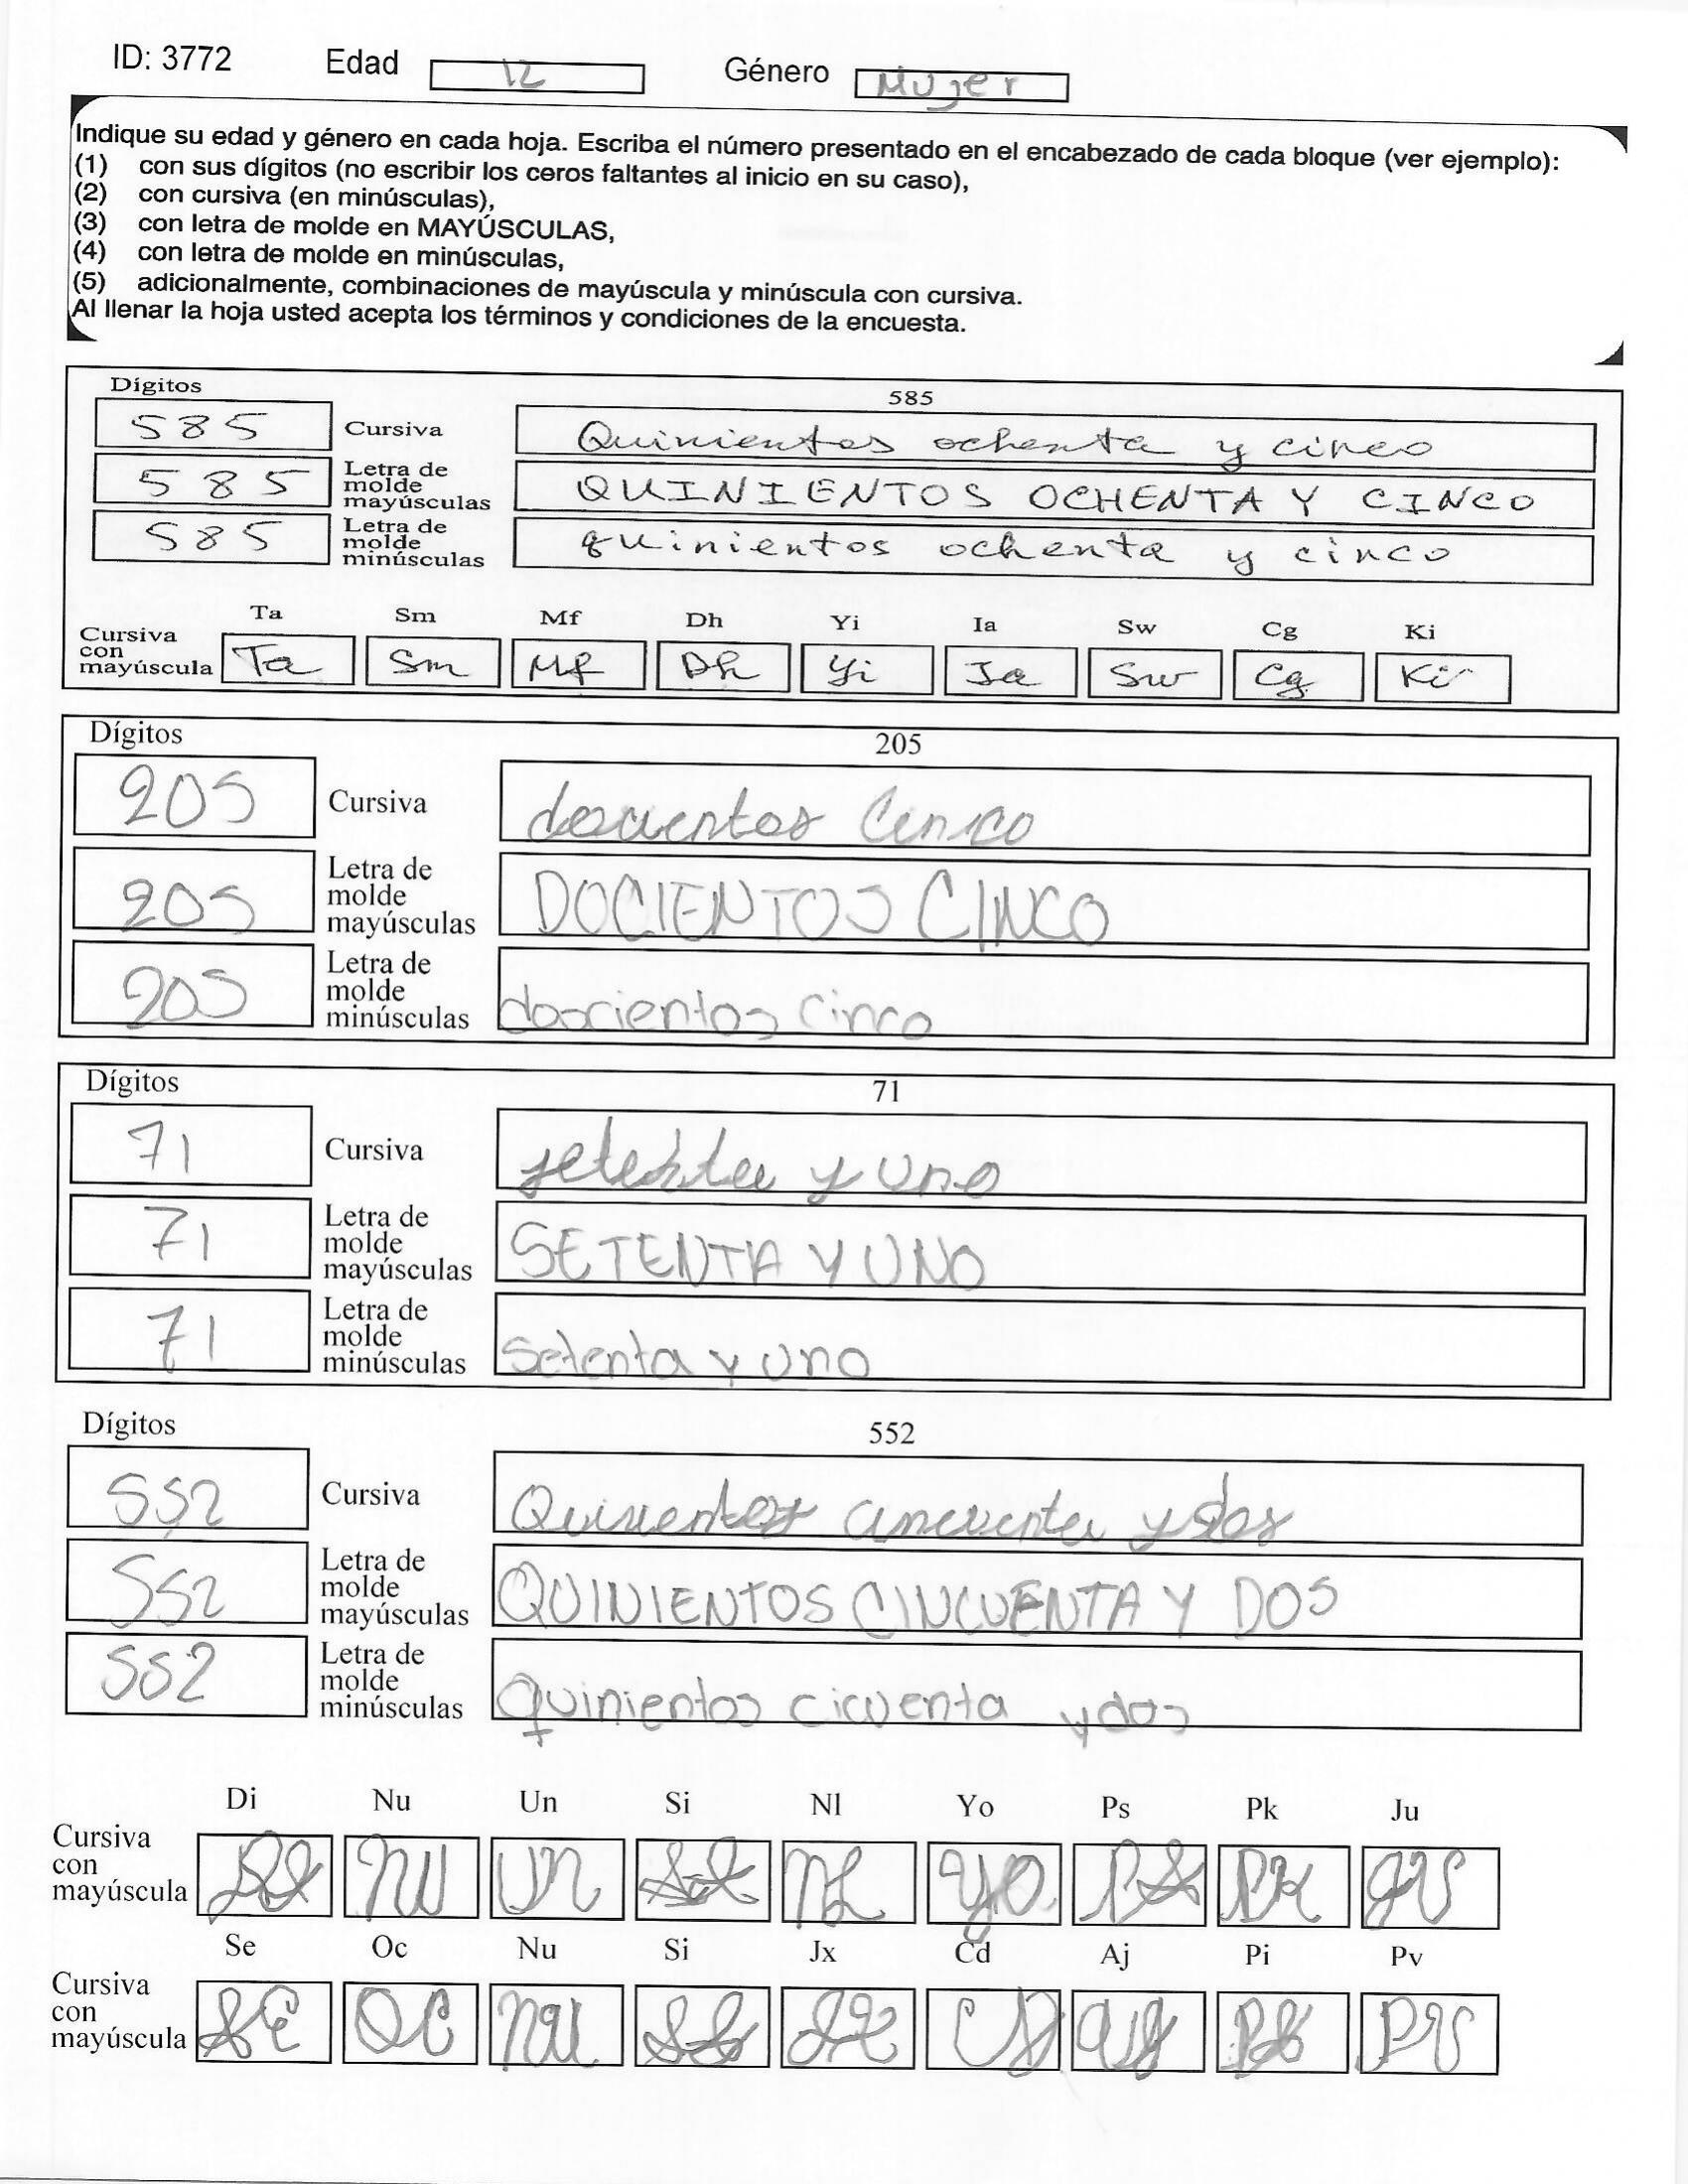 ID: 3772 Edad 12 Género Mujer
Indique su edad y género en cada hoja. Escriba el número presentado en el encabezado de cada bloque (ver ejemplo):
(1) con sus dígitos (no escribir los ceros faltantes al inicio en su caso),
(2) con cursiva (en minúsculas),
(3) con letra de molde en MAYÚSCULAS,
(4) con letra de molde en minúsculas,
(5) adicionalmente, combinaciones de mayúscula y minúscula con cursiva.
Al llenar la hoja usted acepta los términos y condiciones de la encuesta.
Dígitos 585
585 Cursiva Quinientos ochenta y cinco
585 Letra de molde mayúsculas QUINIENTOS OCHENTA Y CINCO
585 Letra de molde minúsculas quinientos ochenta y cinco
Ta Sm Mf Dh Yi Ia Sw Cg Ki
Cursiva con mayúscula Ta Sm Mf Dh Yi Ia Sw Cg Ki
Dígitos 205
205 Cursiva docientos Cinco
205 Letra de molde mayúsculas DOCIENTOS CINCO
205 Letra de molde minúsculas doscientos cinco
Dígitos 71
71 Cursiva setenta y uno
71 Letra de molde mayúsculas SETENTA Y UNO
71 Letra de molde minúsculas setenta y uno
Dígitos 552
552 Cursiva Quinientos cincuenta y dos
552 Letra de molde mayúsculas QUINIENTOS CINCUENTA Y DOS
552 Letra de molde minúsculas quinientos cicuenta y dos
Di Nu Un Si Nl Yo Ps Pk Ju
Cursiva con mayúscula Di Nu Un Si Nl Yo Ps Pk Ju
Se Oc Nu Si Jx Cd Aj Pi Pv
Cursiva con mayúscula Se Oc Nu Si Jx Cd Aj Pi Pv